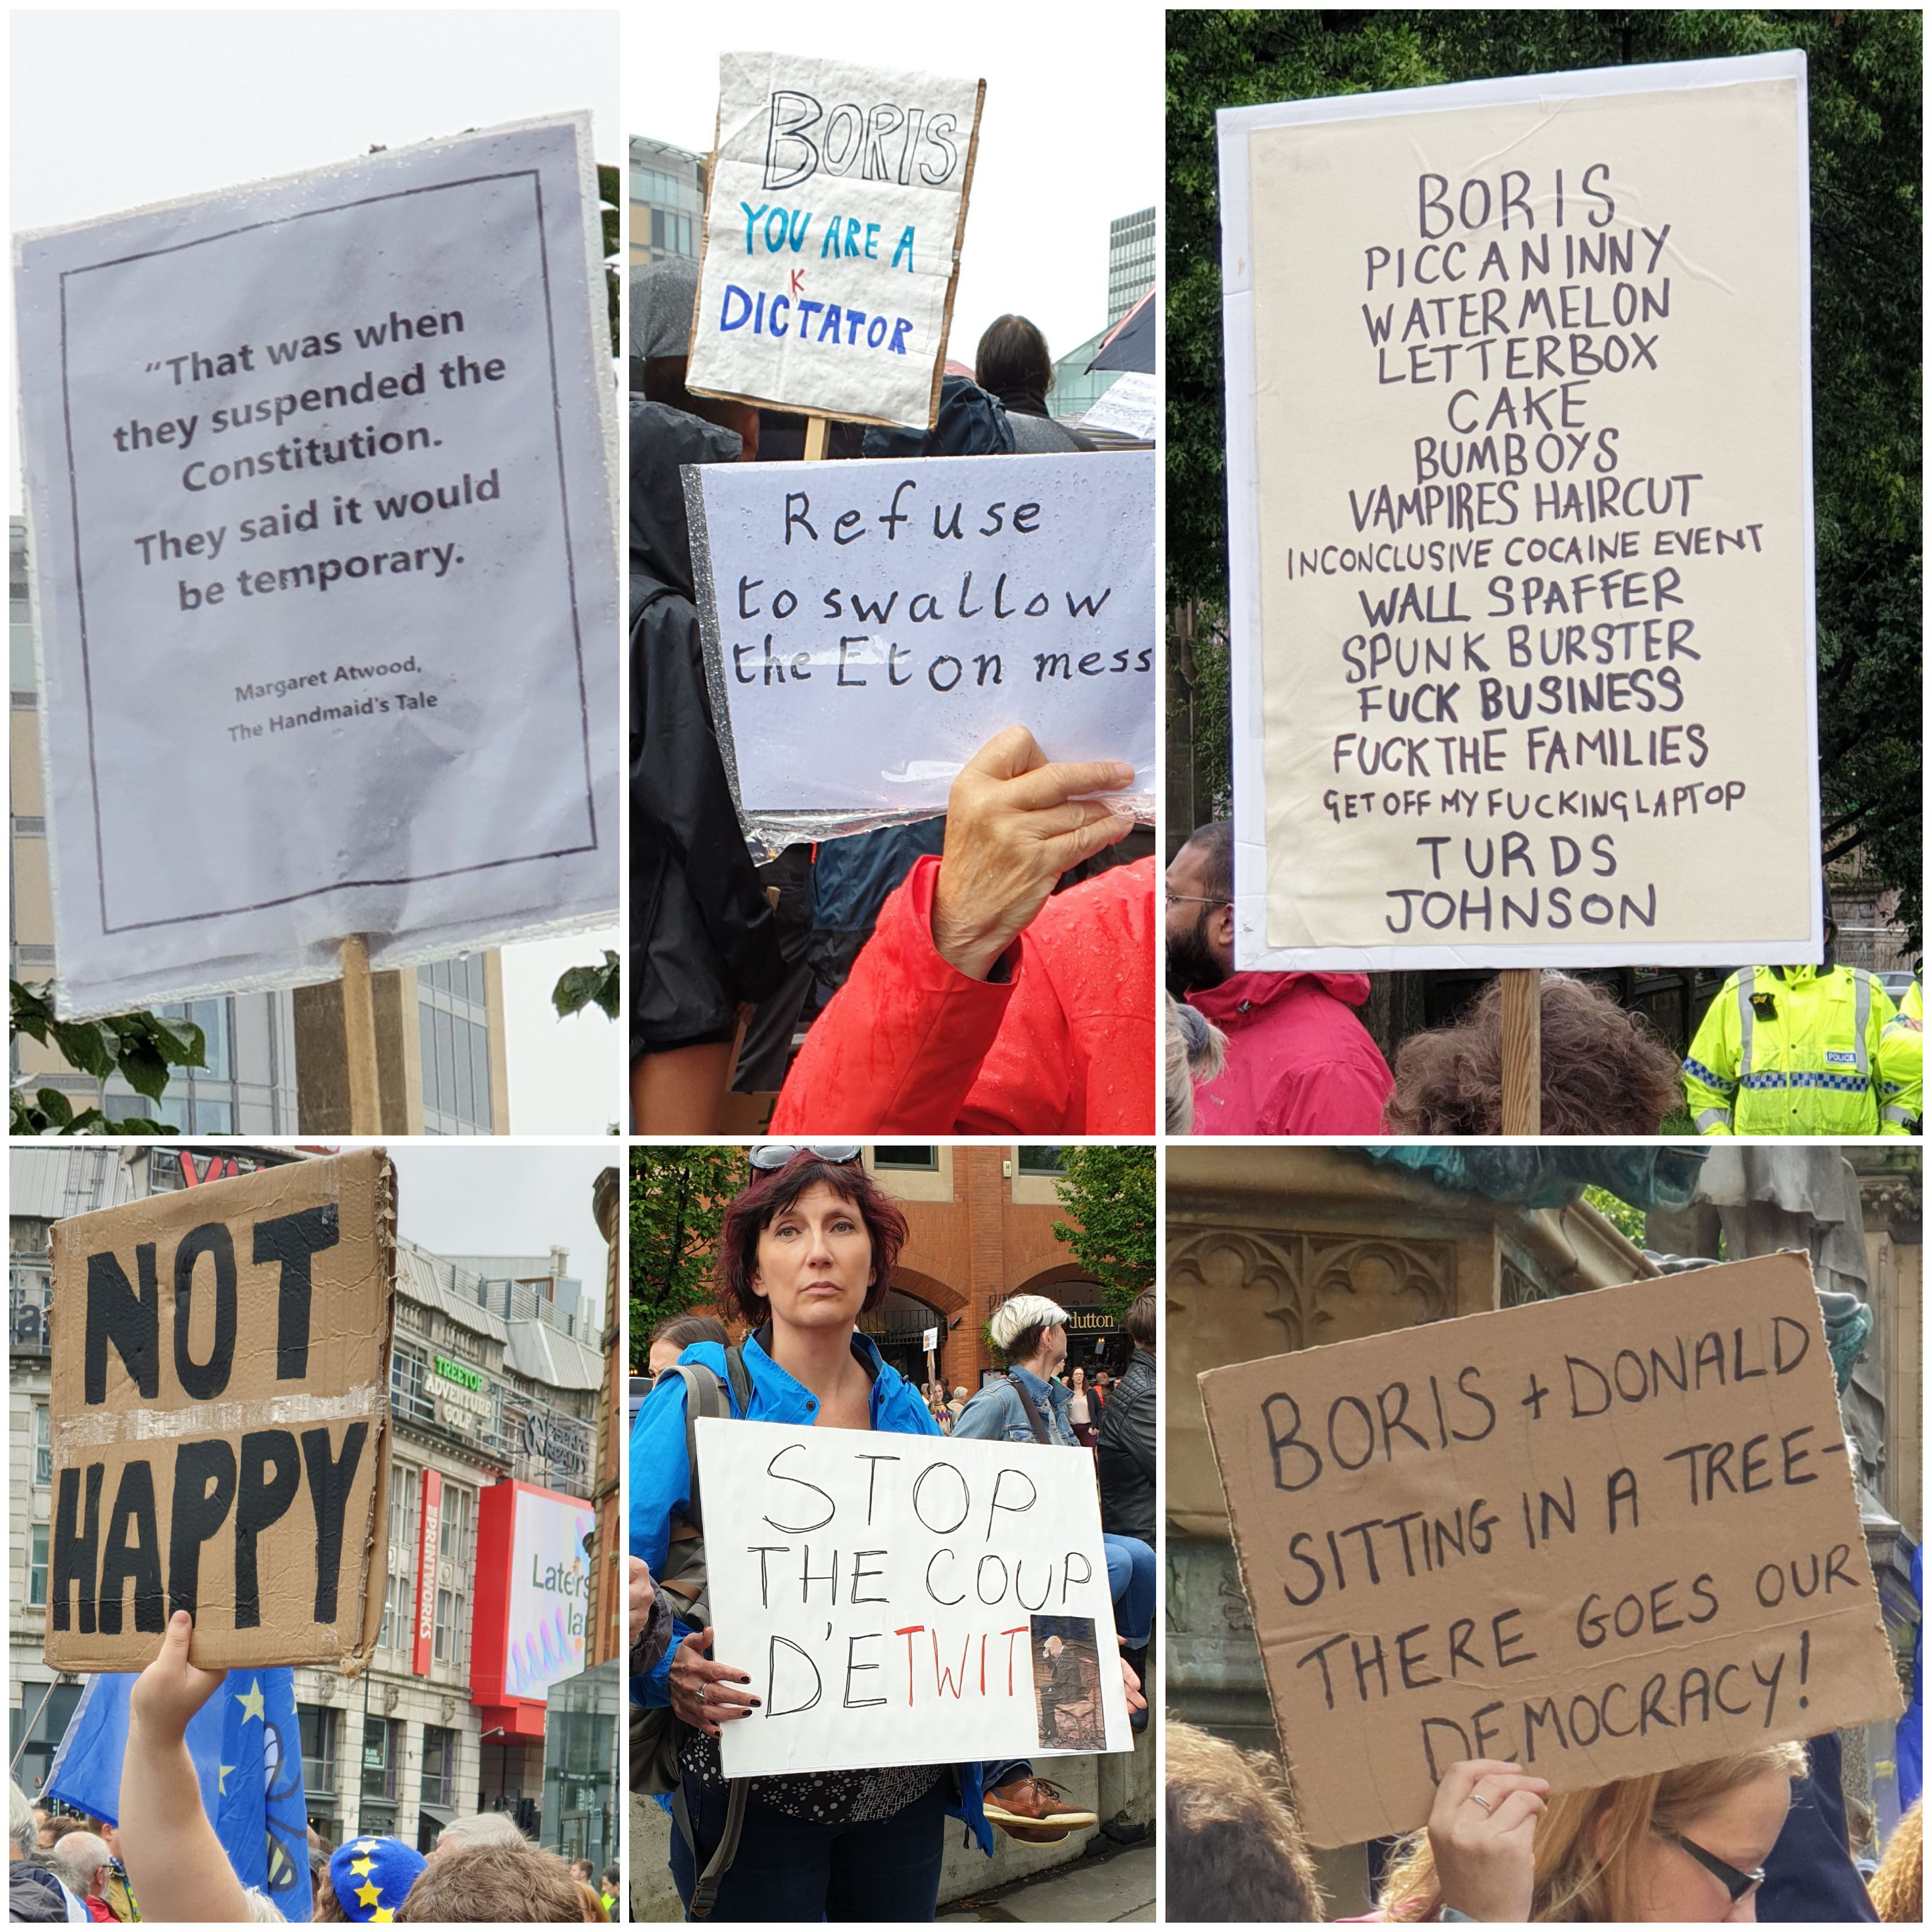 “That was when
they suspended the
Constitution.
They said it would
be temporary.
Margaret Atwood,
The Handmaid's Tale
BORIS
YOU ARE A
K
DICTATOR
Refuse
to swallow
the Eton mess
BORIS
PICCANINNY
WATERMELON
LETTERBOX
CAKE
BUMBOYS
VAMPIRES HAIRCUT
INCONCLUSIVE COCAINE EVENT
WALL SPAFFER
SPUNK BURSTER
FUCK BUSINESS
FUCK THE FAMILIES
GET OFF MY FUCKING LAPTOP
TURDS
JOHNSON
POLICE
NOT
HAPPY
TREETOP
ADVENTURE
GOLF
#PRINTWORKS
Laters
la
STOP
THE COUP
D'ETWIT
dutton
BORIS + DONALD
SITTING IN A TREE-
THERE GOES OUR
DEMOCRACY!